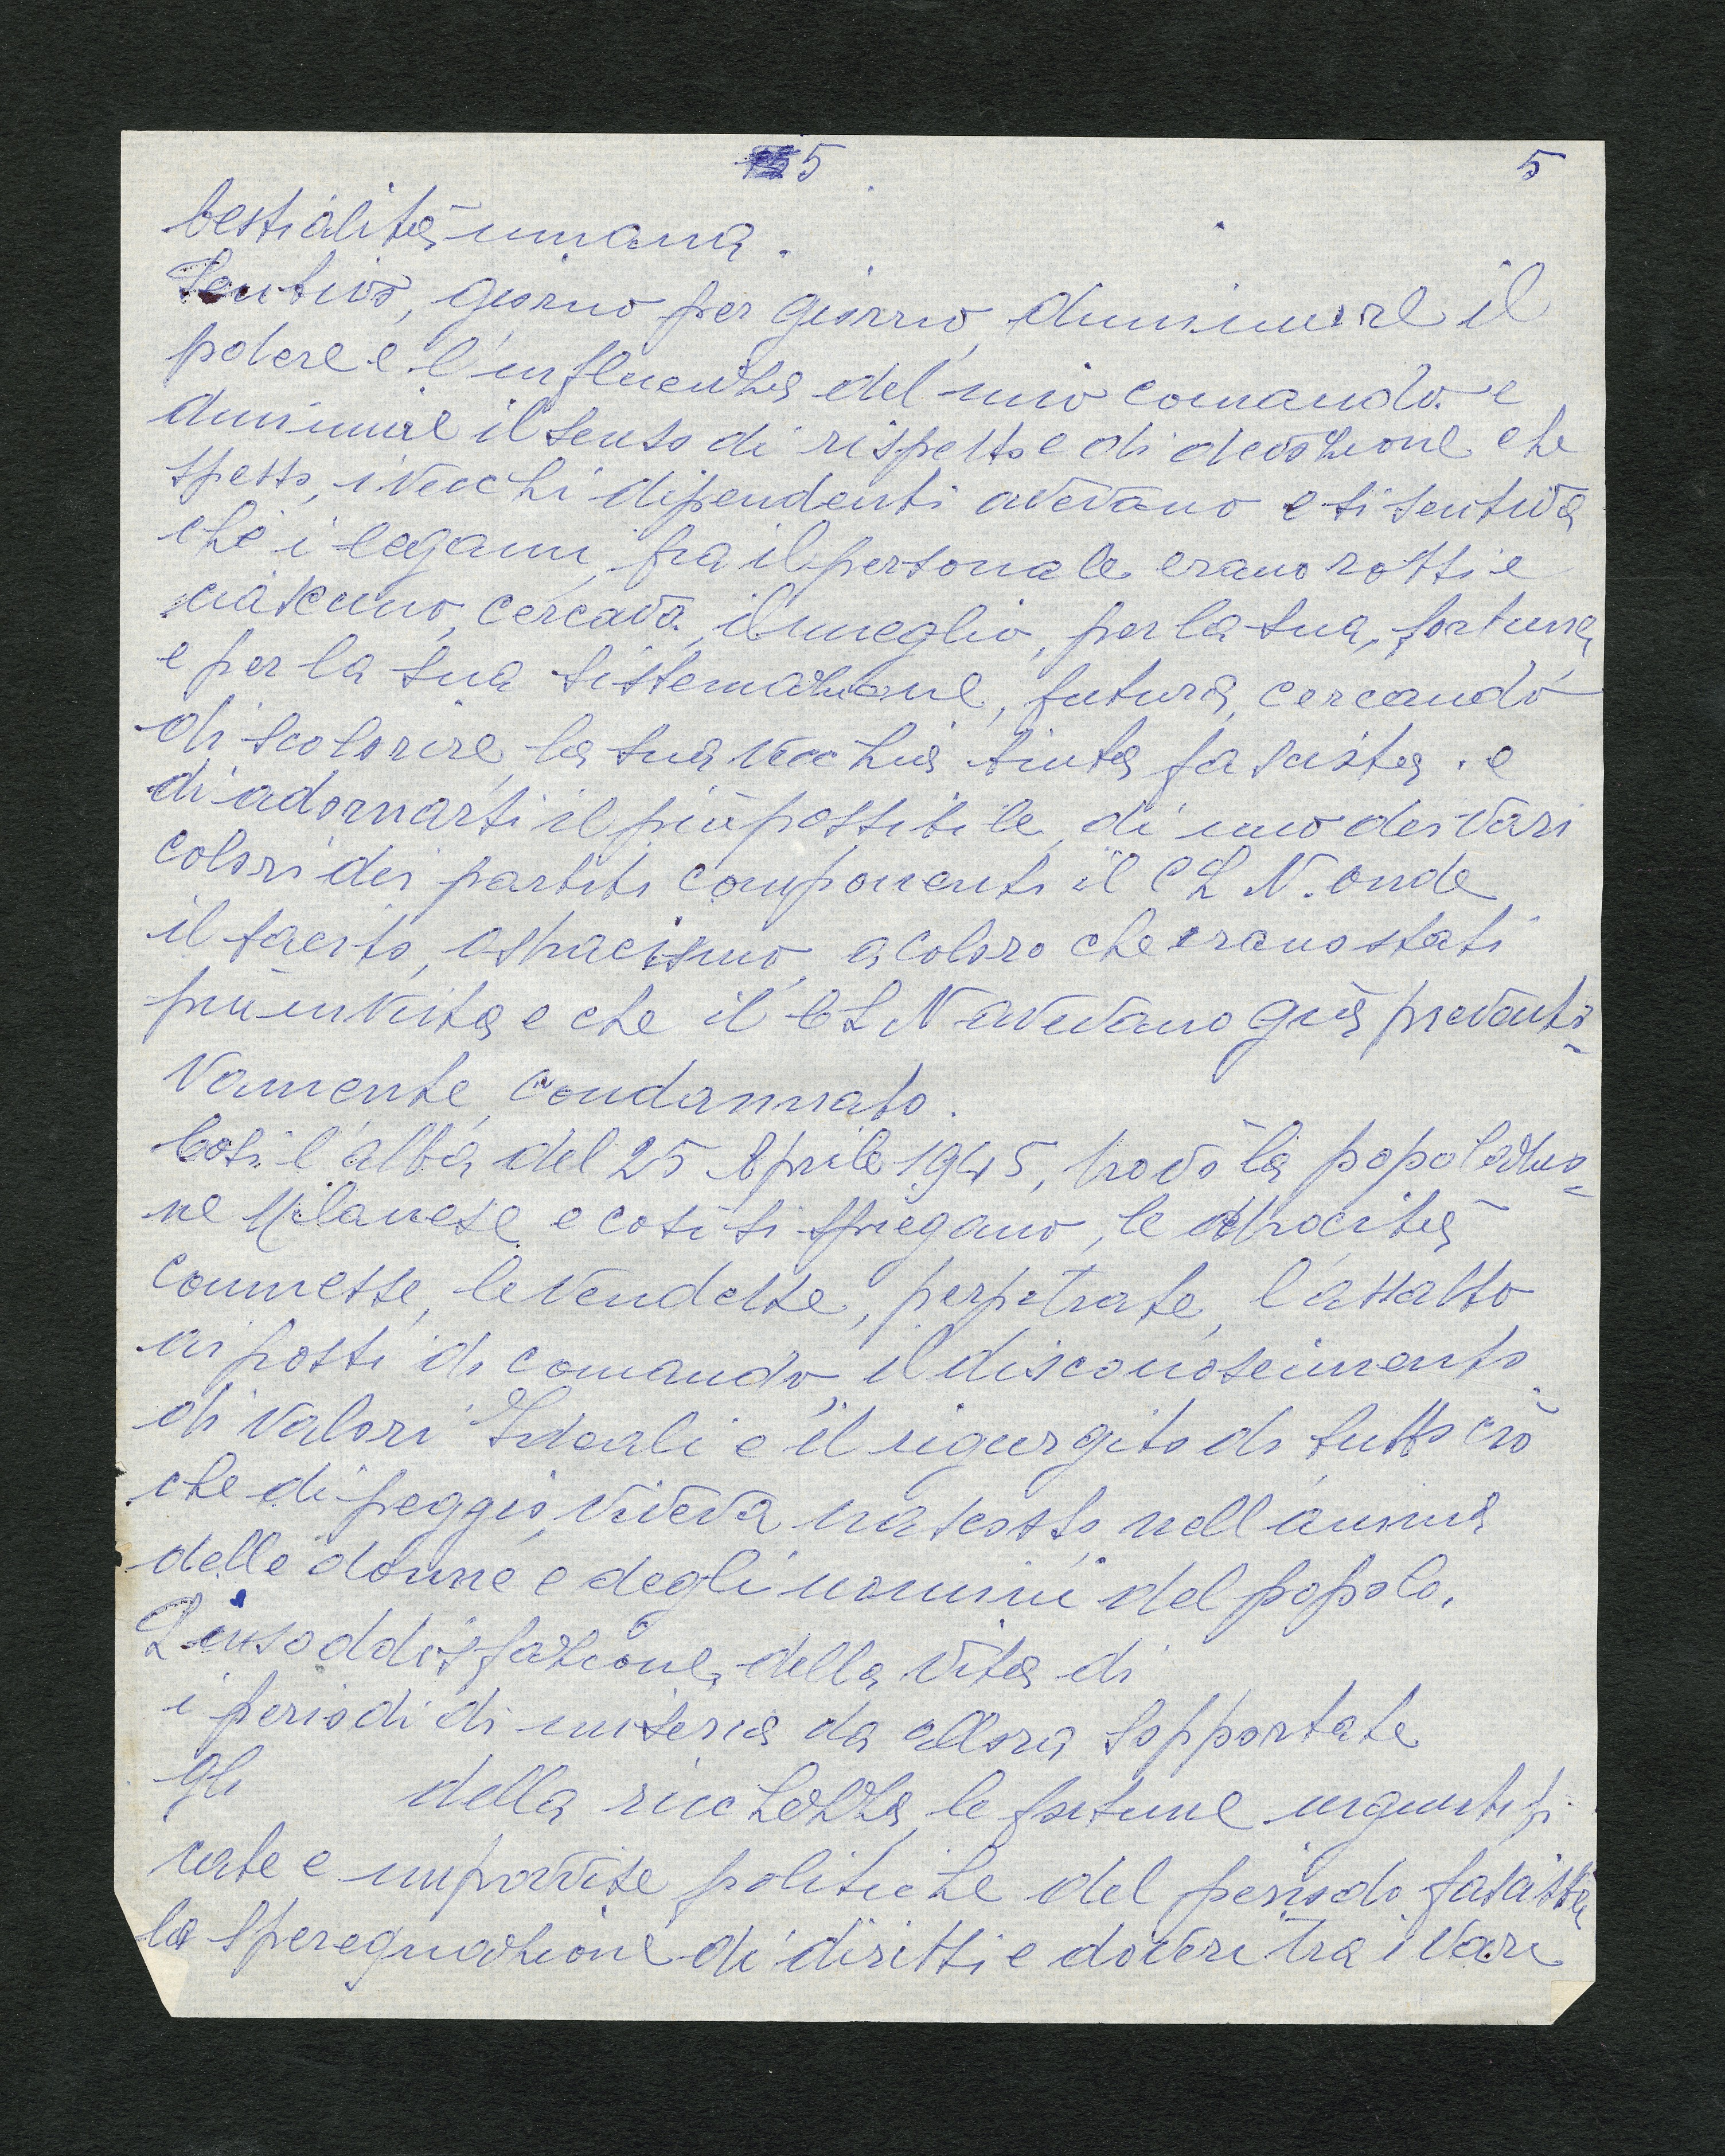 5 5
bestialità umana.
Sentivo, giorno per giorno, diminuire il
potere e l'influenza del mio comando e
diminuire il senso di rispetto e di devozione che
spesso, i vecchi dipendenti avevano e si sentiva
che i legami, fra il personale erano rotti e
ciascuno, cercava, il meglio, per la sua, fortuna,
e per la sua sistemazione, futura, cercando
di scolorire, la sua vecchia tinta fascista. e
di adornarsi il più possibile, di uno dei vari
colori dei partiti componenti il CLN. onde
il tacito, ostracismo, a coloro che erano stati
più in vista e che il CLN avevano già preventi-
vamente, condannato.
Così l'alba del 25 Aprile 1945, trovò la popolazio-
ne Milanese e così si spiegano, le atrocità
commesse, le vendette, perpetrate, l'assalto
ai posti di comando, il disconoscimento
di valori Ideali e il rigurgito di tutto ciò
che di peggio, viveva nascosto, nell'anima
delle donne e degli uomini del popolo.
L'insoddisfazione, della vita di
i periodi di miseria da allora sopportate
gli della ricchezza, le fortune ingiustifi-
cate e improvvise politiche del periodo fascista,
la sperequazione di diritti e doveri tra i vari